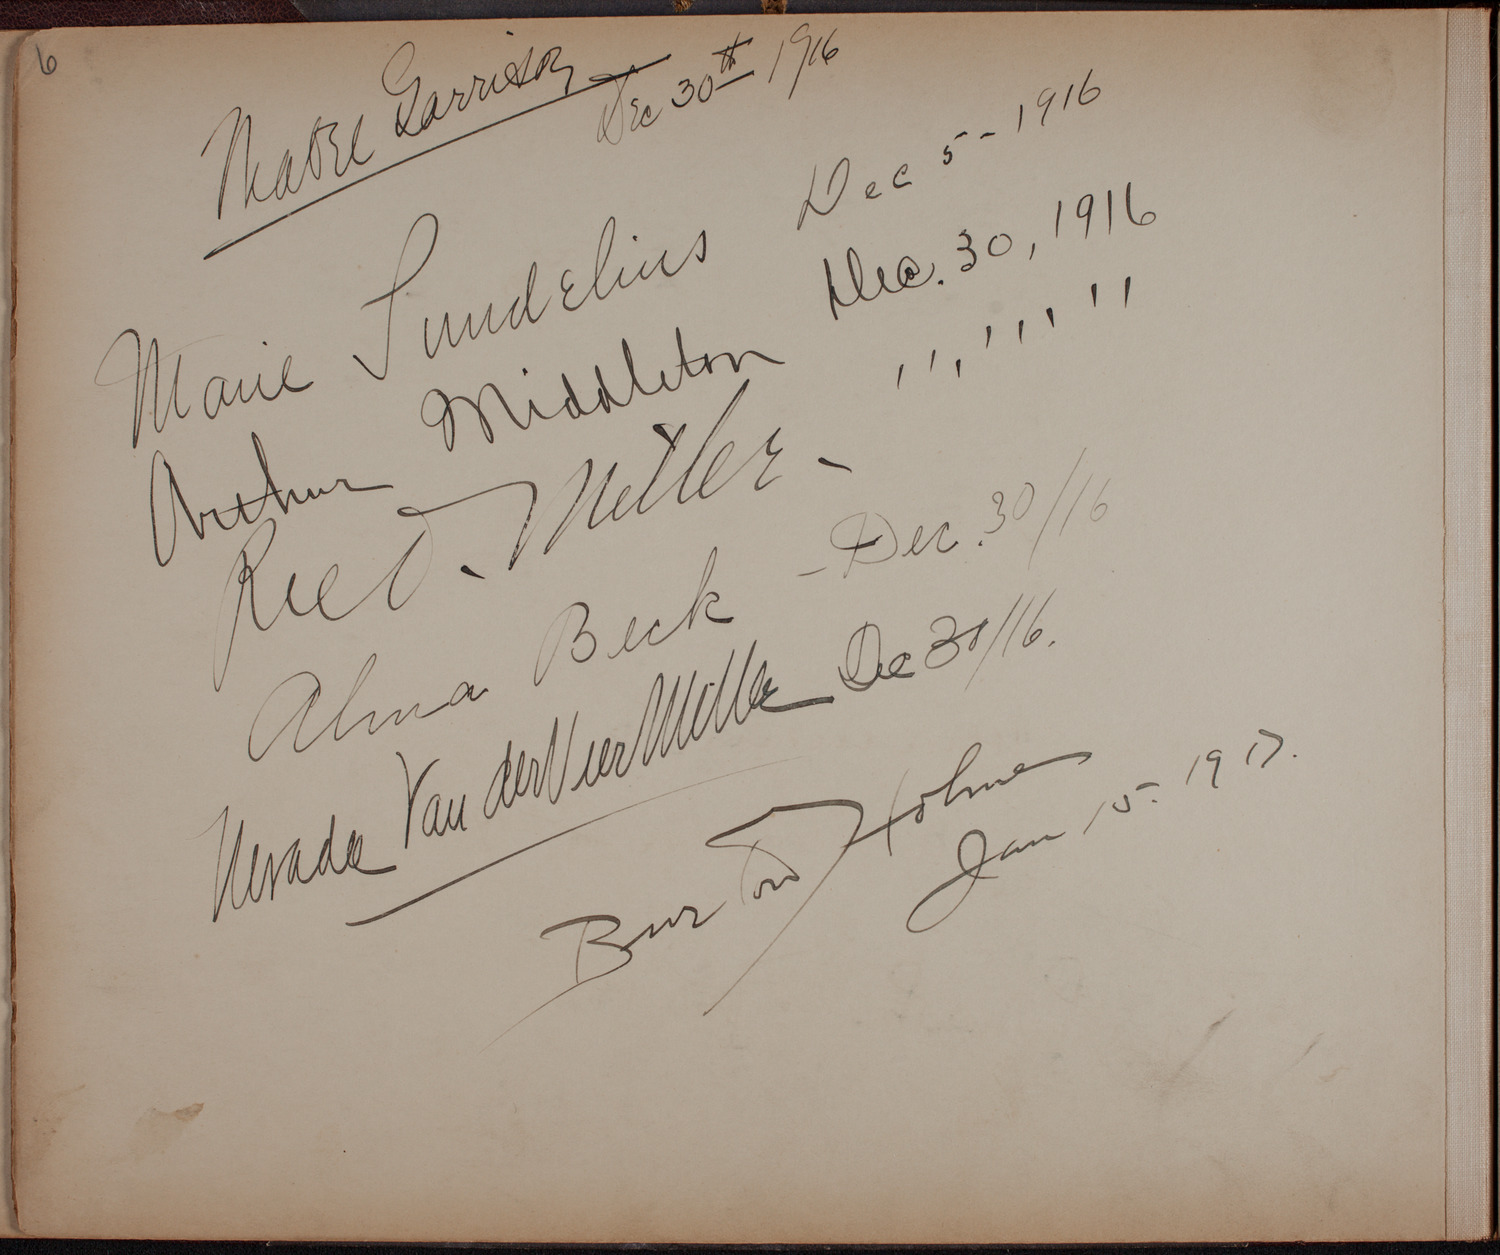 6
Mabel Garrison
Dec 30th 1916
Marie Sundelius Dec 5 - 1916
Arthur Middleton Dec. 30, 1916
Reed. Miller. " " " "
Alma Beck - Dec. 30/16
Nevada Van der Veer Miller Dec 30/16.
Burton Holmes
Jan 15. 1917.